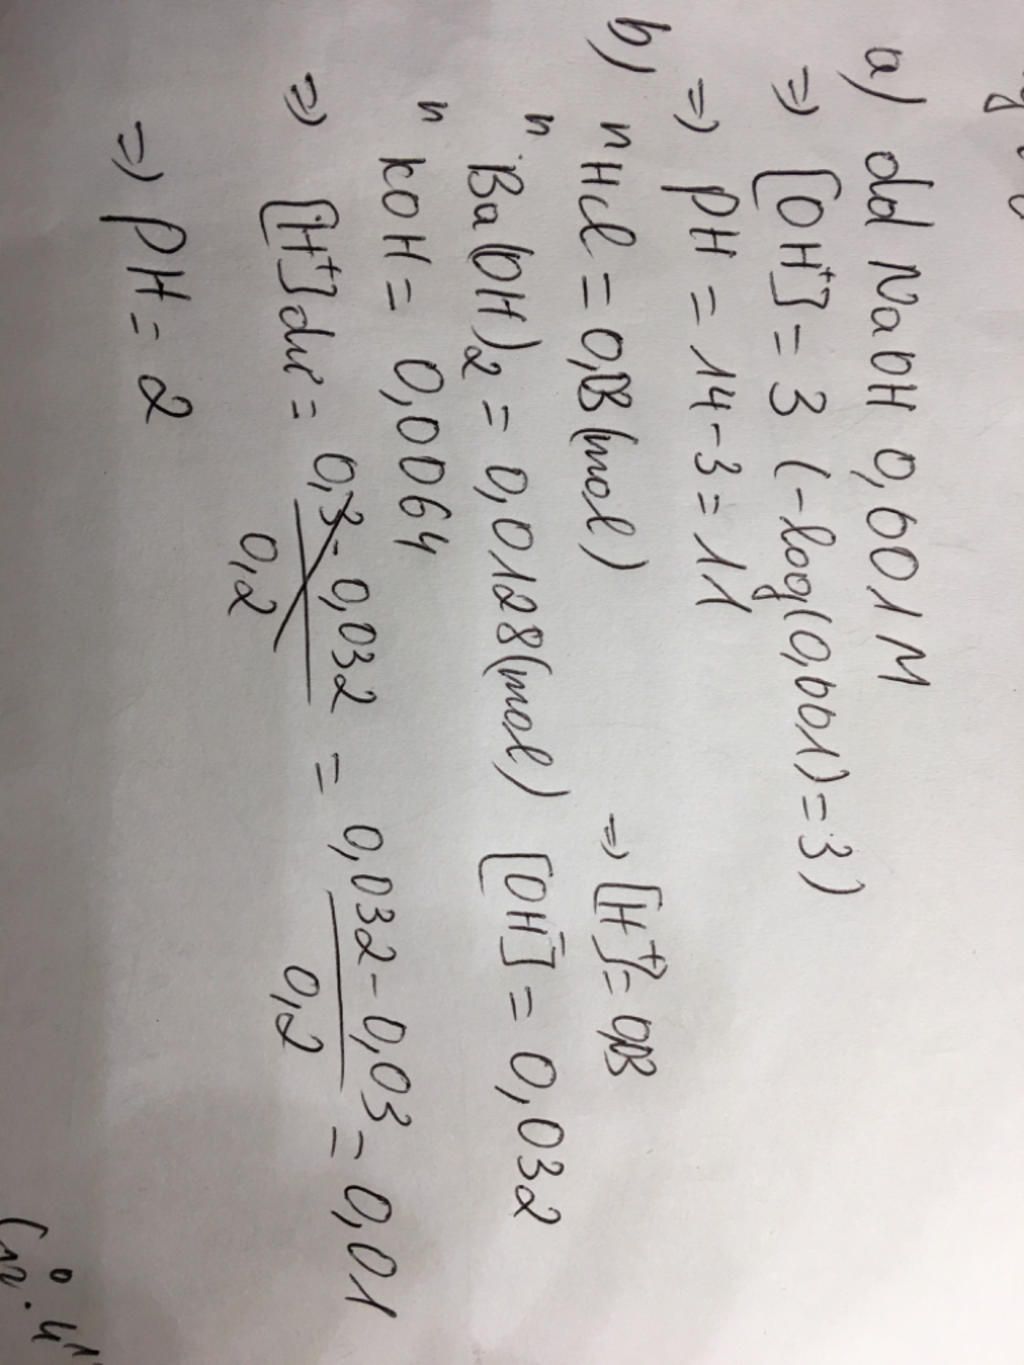 a) dd NaOH 0,001M
=> [OH⁺] = 3 (-log(0,001) = 3)
=> pH = 14-3 = 11
b) nHCl = 0,03 (mol) => [H⁺] = 0,03
n Ba(OH)₂ = 0,0128 (mol) [OH⁻] = 0,032
n KOH = 0,0064
=> [H⁺] dư = 0,3 - 0,032 / 0,2 = 0,032 - 0,03 / 0,2 = 0,01
=> pH = 2